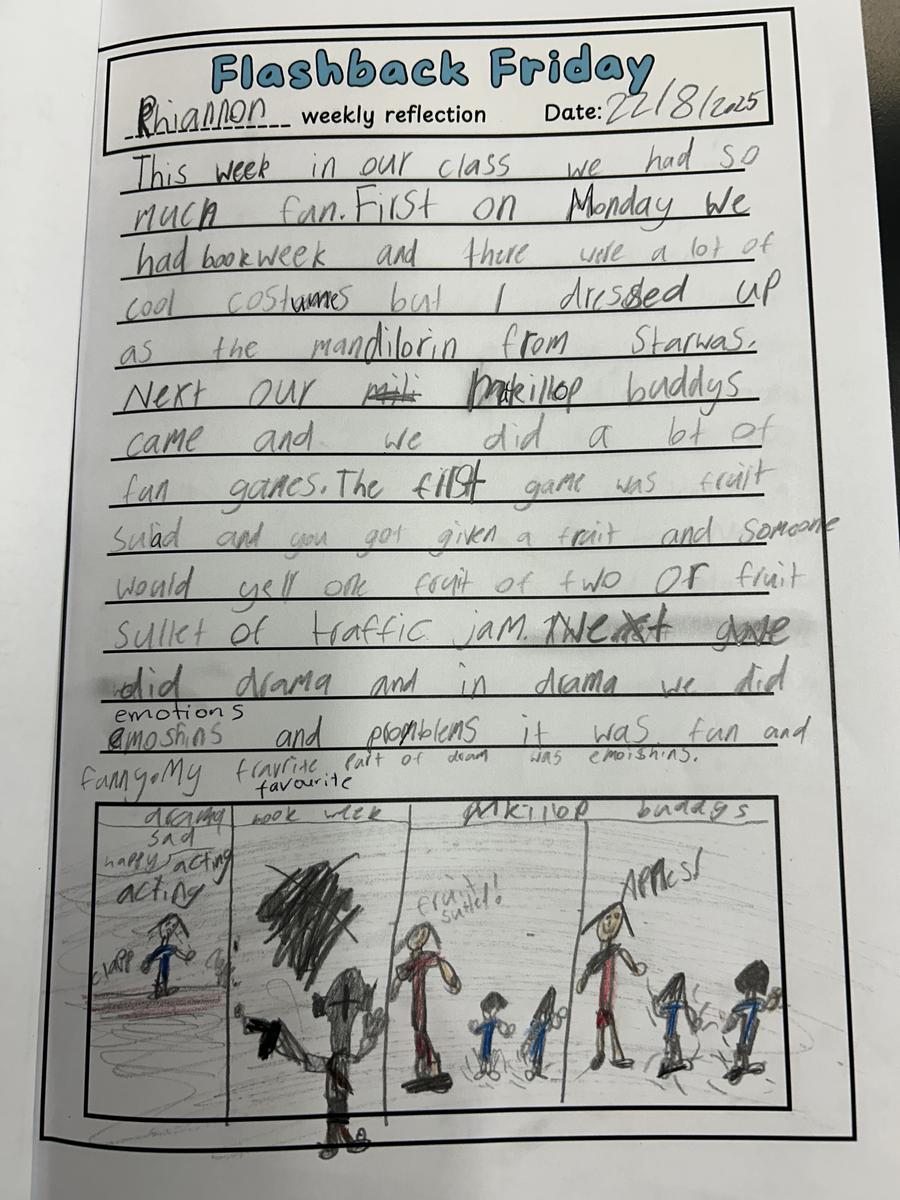 Flashback Friday
Rhiannon weekly reflection Date: 22/8/2025
This week in our class we had so
much fun. First on Monday we
had bookweek and there were a lot of
cool costumes but I dressed up
as the mandilorin from Starwas.
Next our makillop buddys
came and we did a lot of
fun games. The first game was fruit
salad and you got given a fruit and someone
would yell one fruit of two or fruit
sullet of traffic jam. Next we
did drama and in drama we did
emotions
emoshins and promblems it was fun and
fanny. My fravrite part of dram was emoishins.
favourite
drama book week Makillop buddys
sad
happy acting
acting
clapp
fruit
sullet!
Apples!